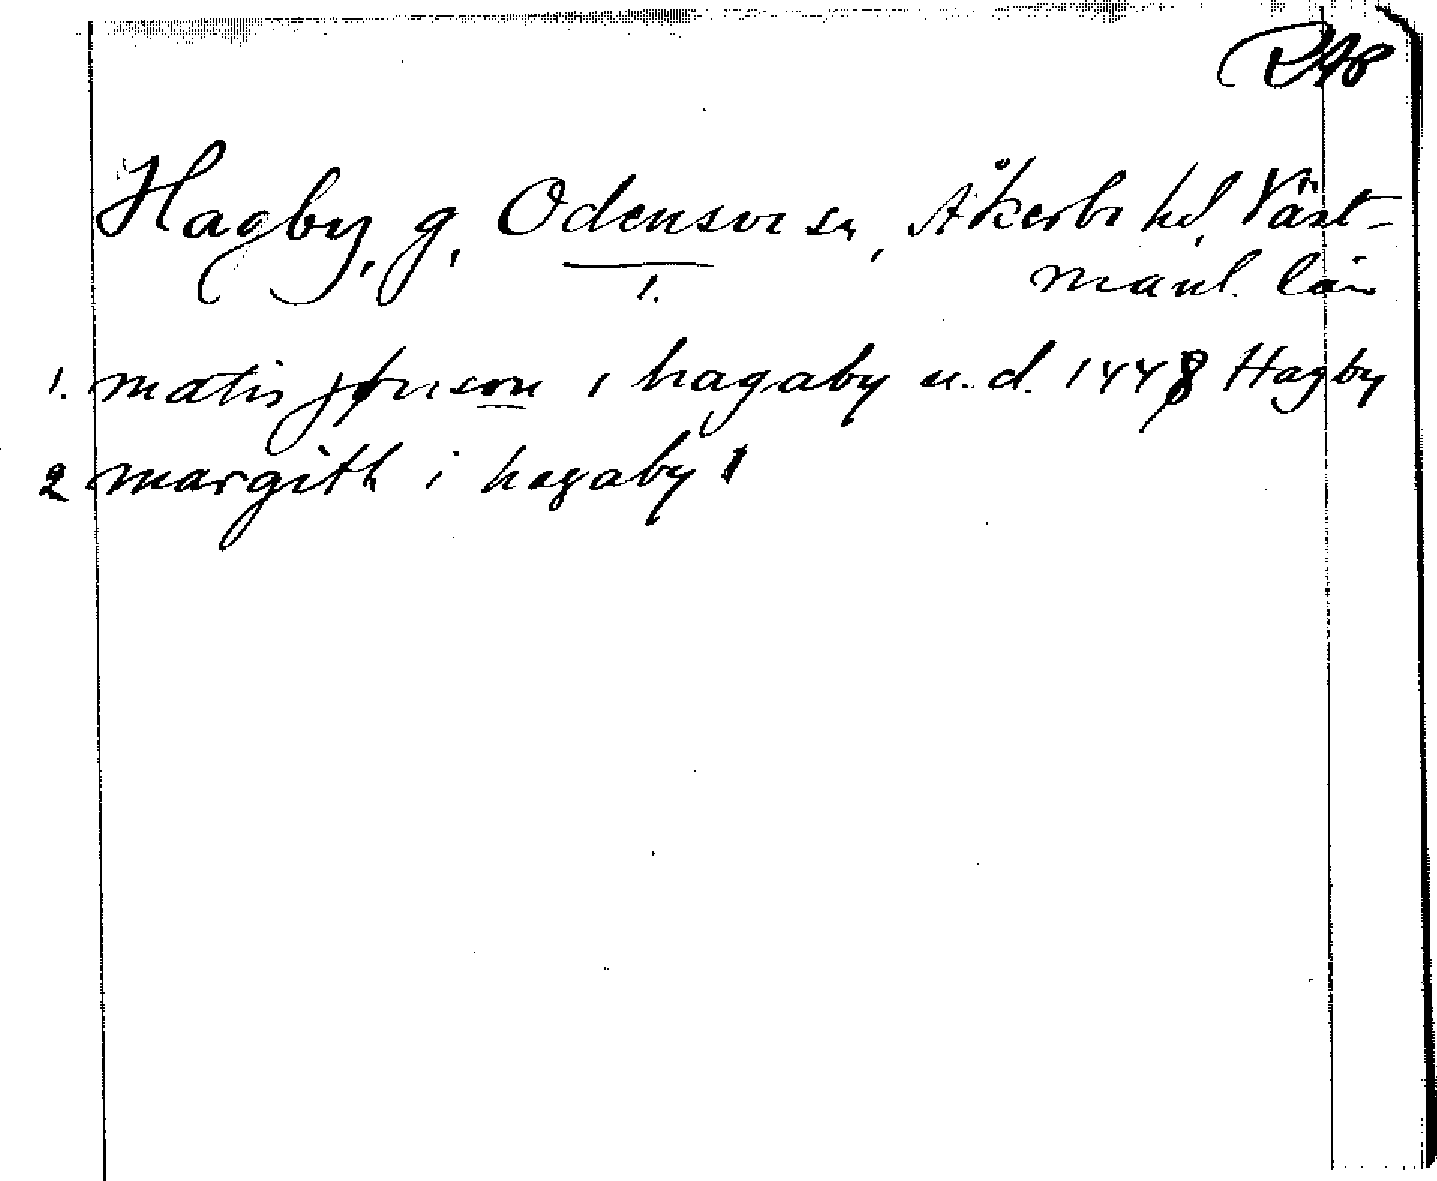 Hagby, g. Odensvi sn, Åkerbo hd, Väst-
manl. län
1.
1. matis jønson i hagaby u.d. 1448 Hagby
2 margith i hagaby